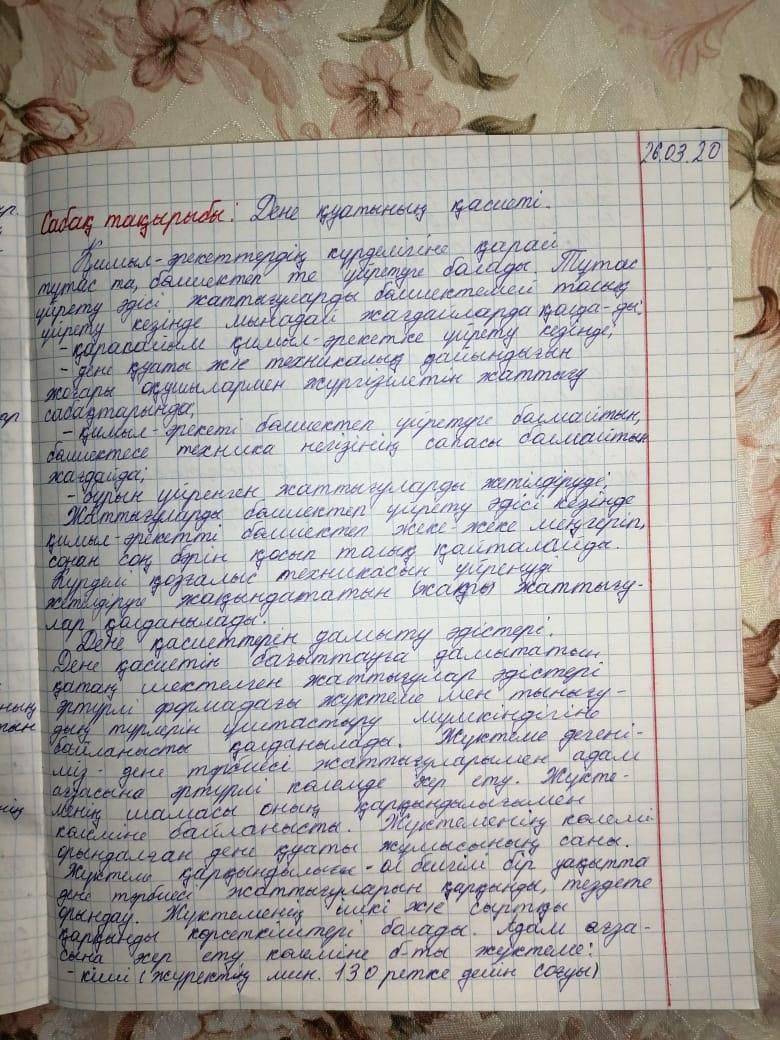 26.03.20
Сабақ тақырыбы: Дене қуатының қасиеті.
Қимыл-әрекеттердің күрделігіне қарай
тұтас та, бөлшектеп те үйретуге болады. Тұтас
үйрету әдісі жаттығуларды бөлшектемей толық
үйрету кезінде мынадай жағдайларда қолда-ды:
- қарапайым қимыл-әрекетке үйрету кезінде;
- дене қуаты жә техникалық дайындығын
жоғары оқушылармен жүргізілетін жаттығу
сабақтарында;
- қимыл-әрекеті бөлшектеп үйретуге болмайтын,
бөлшектесе техника негізінің сапасы болмайтын
жағдайда;
- бұрын үйренген жаттығуларды жетілдіруде;
Жаттығуларды бөлшектеп үйрету әдісі кезінде
қимыл-әрекетті бөлшектеп жеке-жеке меңгеріп,
сонан соң бәрін қосып толық қайталайды.
Күрделі қозғалыс техникасын үйренуді
жетілдіруге жақындататын жаттығу-
лар қолданылады.
Дене қасиеттерін дамыту әдістері.
Дене қасиетін бағыттауға дамытатын
қатаң шектелген жаттығулар әдістері
әртүрлі формадағы жүктеме мен тынығу-
дың түрлерін ұштастыру мүмкіндігіне
байланысты қолданылады. Жүктеме дегені-
міз - дене тәрбиесі жаттығуларымен адам
ағзасына әртүрлі көлемде әсер ету. Жүкте-
менің шамасы оның қарқындылығымен
көлеміне байланысты. Жүктеменің көлемі
орындалған дене қуаты жұмысының саны.
Жүктеме қарқындылығы - ол белгілі бір уақытта
дене тәрбиесі жаттығуларын қарқынды, тездете
орындау. Жүктеменің ішкі жә сыртқы
қарқынды көрсеткіштері болады. Адам ағза-
сына әсер ету көлеміне б-ты жүктеме:
- кіші (жүректің мин. 130 ретке дейін соғуы)